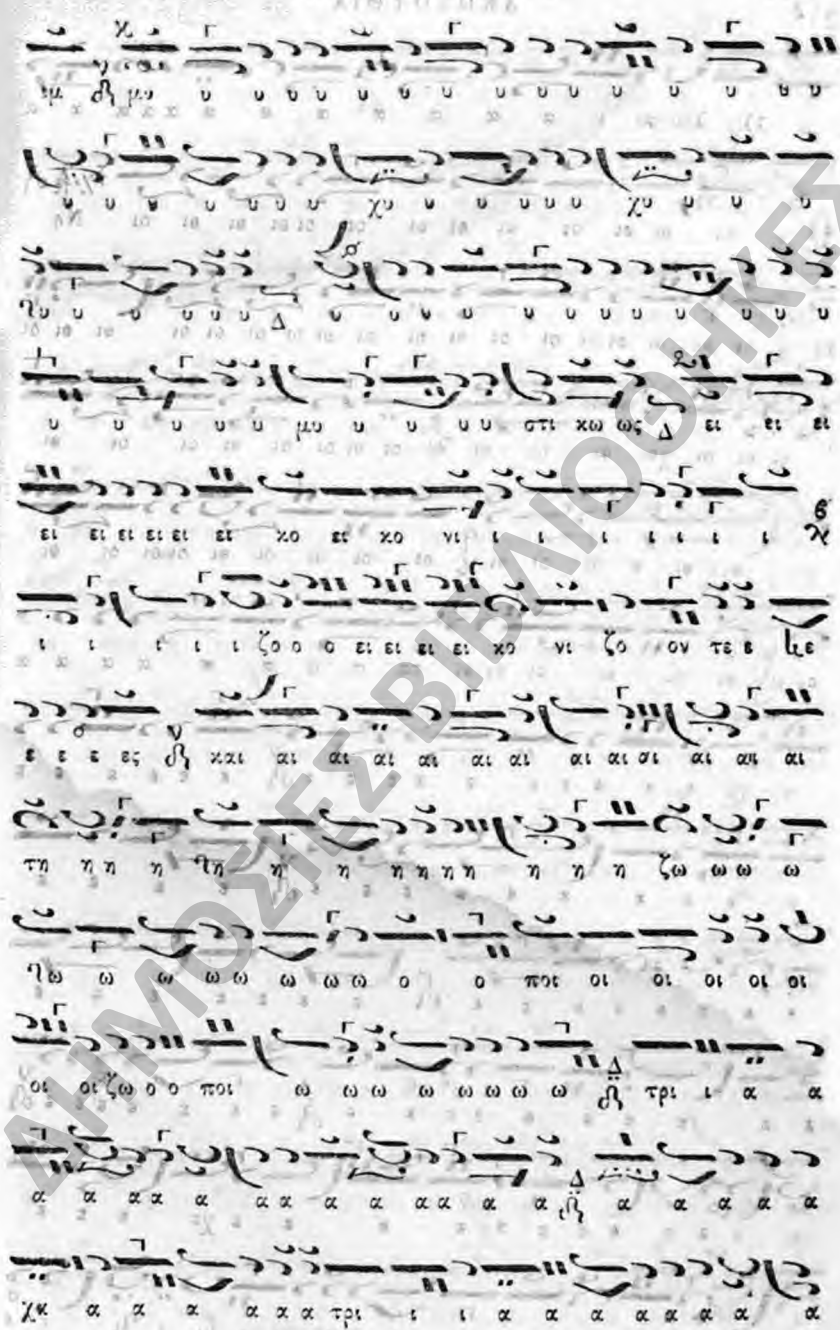 ιμ μυ υ υ υ υ υ υ υ υ υ υ υ υ υ υ υ
υ υ υ υ υ υ υ χυ υ υ υ υ υ υ χυ υ υ υ
υ υ υ υ υ υ Δ υ υ υ υ υ υ υ υ υ υ υ υ υ
υ υ υ υ υ μυ υ υ υ υ στι κω ως Δ ει ει ει
ει ει ει ει ει ει κο ει κο νι ι ι ι ι ι ι ι
ι ι ι ι ι ζο ο ο ει ει ει ει κο νι ζο ον τε ε
ε ε ε ες και αι αι αι αι αι αι αι αι αι αι αι
τη η η η η η η η η η η η η ζω ω ω ω
ω ω ω ω ω ω ω ο ο ποι οι οι οι οι οι
οι οι ζω ο ο ποι ω ω ω ω ω ω ω ω Δ τρι ι α α
α α α α α α α α α α α α α Δ α α α α α
χα α α α α α α τρι ι ι α α α α α α α
ΔΗΜΟΣΙΕΣ ΒΙΒΛΙΟΘΗΚΕΣ